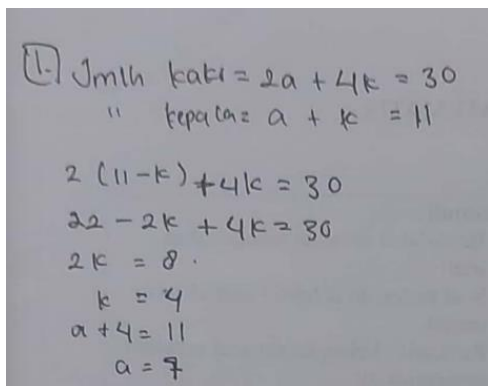 1. Jmlh kaki = 2a + 4k = 30
" kepala = a + k = 11
2 (11 - k) + 4k = 30
22 - 2k + 4k = 30
2k = 8.
k = 4
a + 4 = 11
a = 7